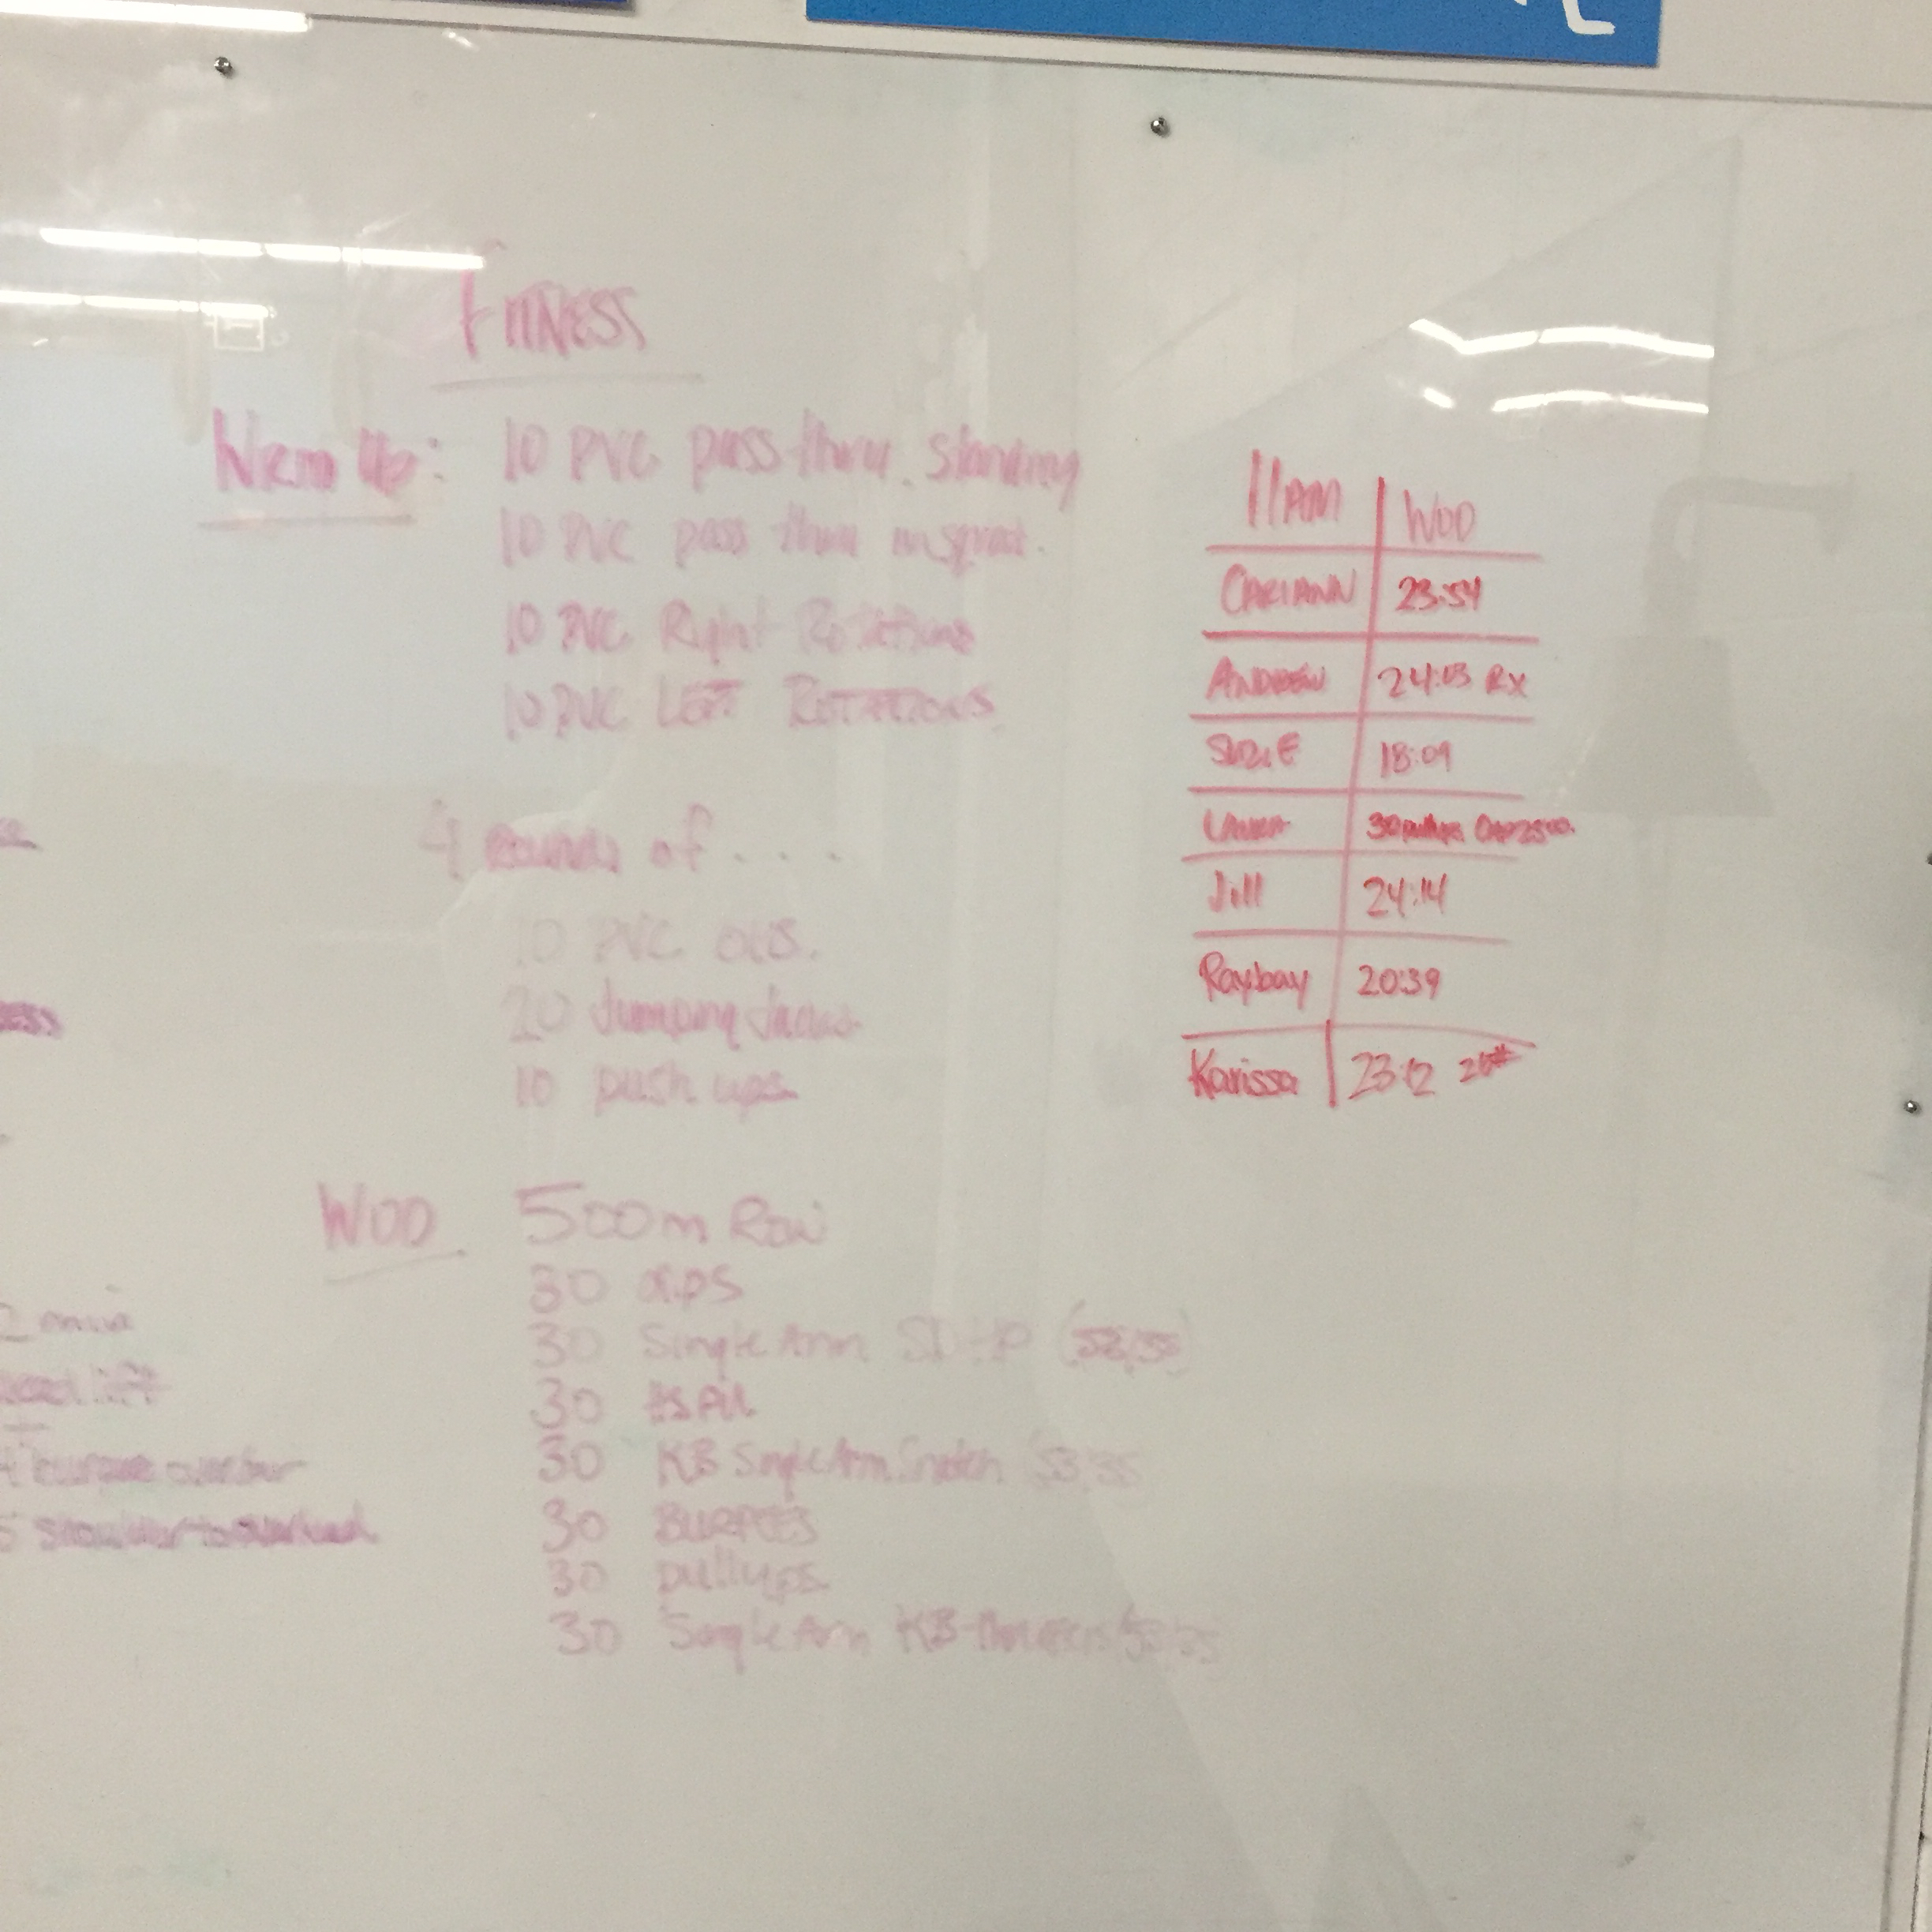 FITNESS
Warm Up: 10 PVC pass thru. standing
10 PVC pass thru in squat.
10 PVC Right Rotations
10 PVC LEFT ROTATIONS
4 rounds of....
10 PVC OHS.
20 Jumping Jacks
10 push ups
WOD 500m Row
30 dips
30 Single Arm SDHP (53/35)
30 HSPU
30 KB Single Arm Snatch 53/35
30 BURPEES
30 pullups
30 Single Arm KB Thrusters 53/35
11AM WOD
CARIANN 23:54
ANDREW 24:03 Rx
SUZIE 18:09
LAURA 30 pullups
Jill 24:14
Raybay 20:39
Karissa 23:12 26#
burpee over bar
5 shoulder to overhead